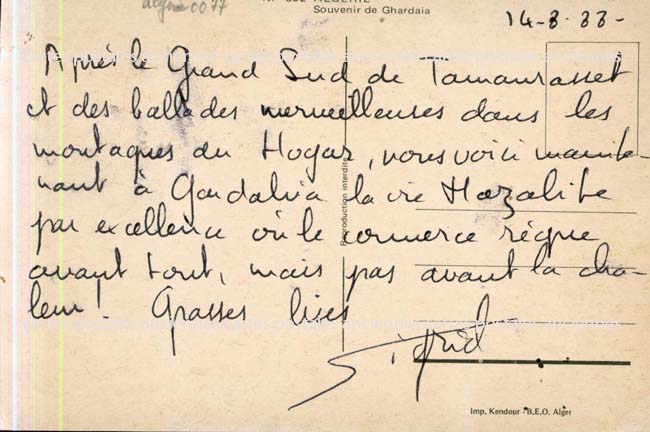 algérie 0077
N° 392 ALGERIE
Souvenir de Ghardaia
14-8-88-
Après le Grand Sud de Tamanrasset
et des ballades merveilleuses dans les
montagnes du Hogar, nous voici mainte-
nant à Gardahia la vie Mozabite
par excellence où le commerce règne
avant tout, mais pas avant la cha-
leur! Grosses bises
Sigrid
Reproduction interdite
Imp. Kendour - B.E.O. Alger